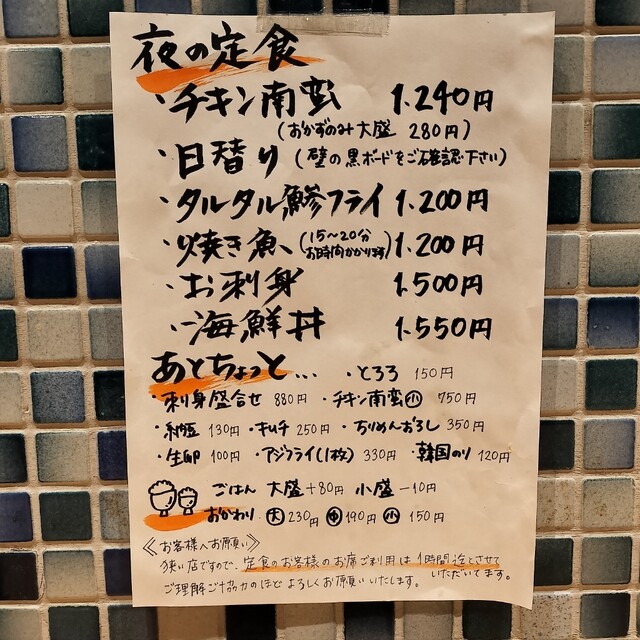 夜の定食
・チキン南蛮 1.240円
(おかずのみ大盛 280円)
・日替り (壁の黒ボードをご確認下さい)
・タルタル鯵フライ 1.200円
・焼き魚 (15〜20分お時間かかります) 1.200円
・お刺身 1.500円
・海鮮丼 1.550円
あとちょっと... ・とろろ 150円
・刺身盛合せ 880円 ・チキン南蛮小 750円
・納豆 130円 ・キムチ 250円 ・ちりめんおろし 350円
・生卵 100円 ・アジフライ(1枚) 330円 ・韓国のり 120円
ごはん 大盛+80円 小盛-10円
おかわり 大 230円 中 190円 小 150円
《お客様へお願い》
狭い店ですので、定食のお客様のお席ご利用は1時間迄とさせていただいてます。
ご理解ご協力のほどよろしくお願いいたします。